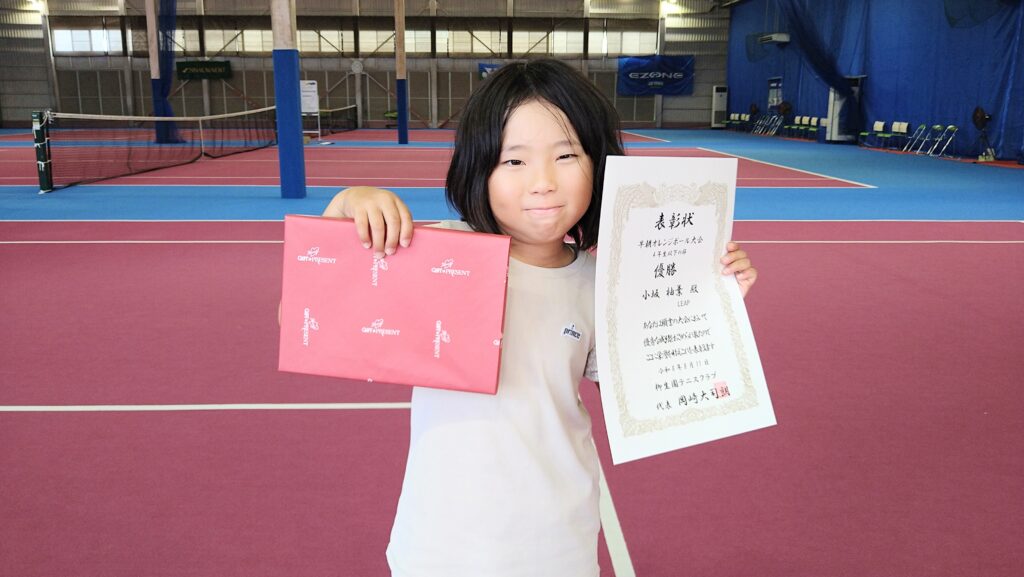 EZONE
GIFT PRESENT
GIFT PRESENT
GIFT PRESENT
GIFT PRESENT
GIFT PRESENT
GIFT PRESENT
prince
表彰状
オレンジボール大会
4年生以下の部
優勝
小坂 柚葉 殿
LEAP
あなたは頭書の大会において
優秀な成績をおさめられましたので
ここに栄誉を称えこれを表彰します
令和6年8月11日
柳生園テニスクラブ
代表 岡崎大司朗